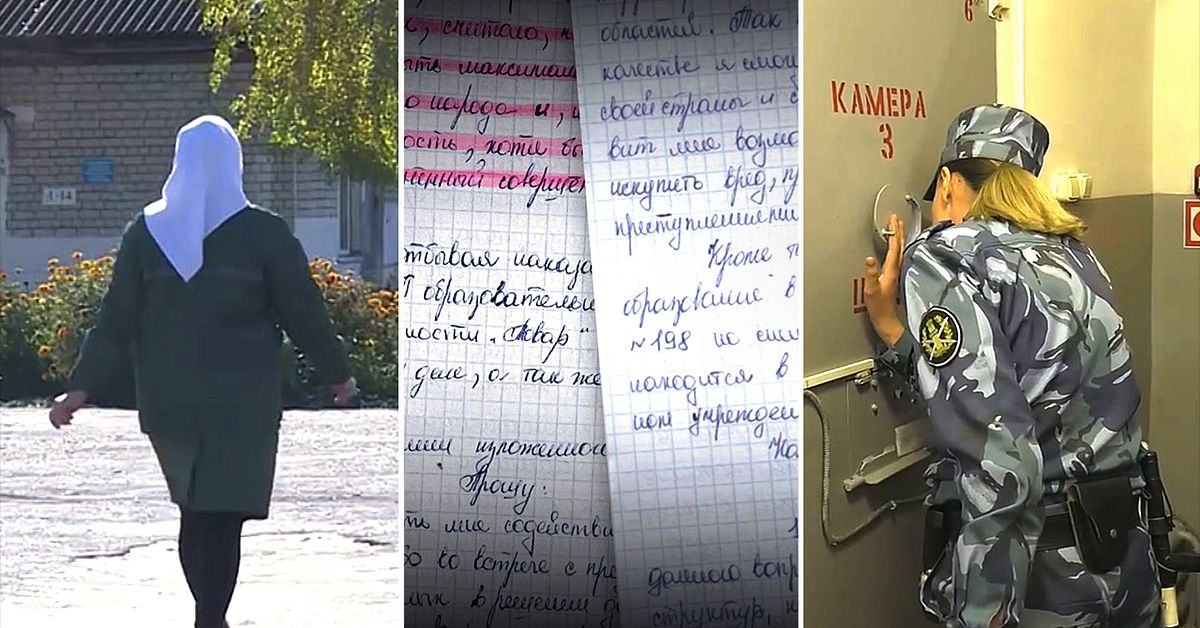 1-14
к, считаю, н
ыть максимал
о народа и,
ость, хотя бы
енный соверше
тбывая наказа
образователь
ности „Сквар"
деле, а так же
изложенног
Прошу:
ть мне содействи
во встрече с пре
областей. Так
качестве я смог
своей страны и с
вит мне возмо
искупить вред, п
преступлениями
Кроме т
образование в
№198 по
находится в
ном учрежден
На
данного вопр
структур, н
6
КАМЕРА
3